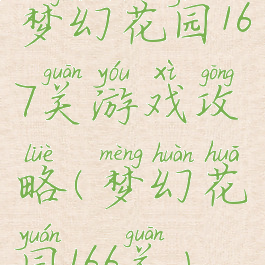 梦幻花园16
guān yóu xì gōng
7关游戏攻
lüè mèng huàn huā
略(梦幻花
yuán guān
园166关)